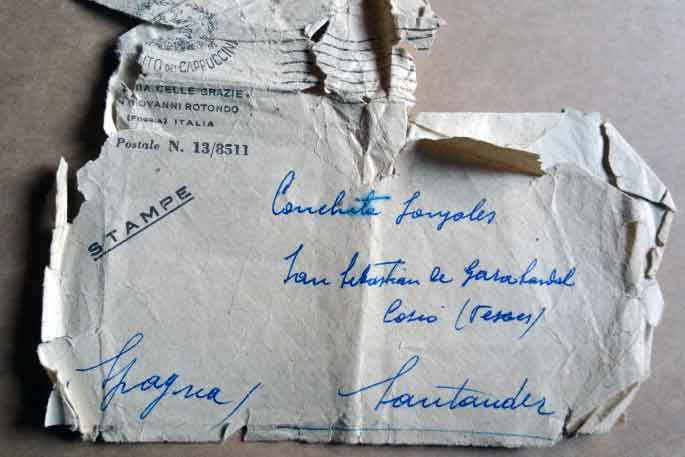 TO DEI CAPPUCCINI
DELLE GRAZIE
GIOVANNI ROTONDO
(FOGGIA) ITALIA
Postale N. 13/8511
STAMPE
Conchita Gonzales
San Sebastian de Garabandal
Cosio (Pesaes)
Spagna/
Santander